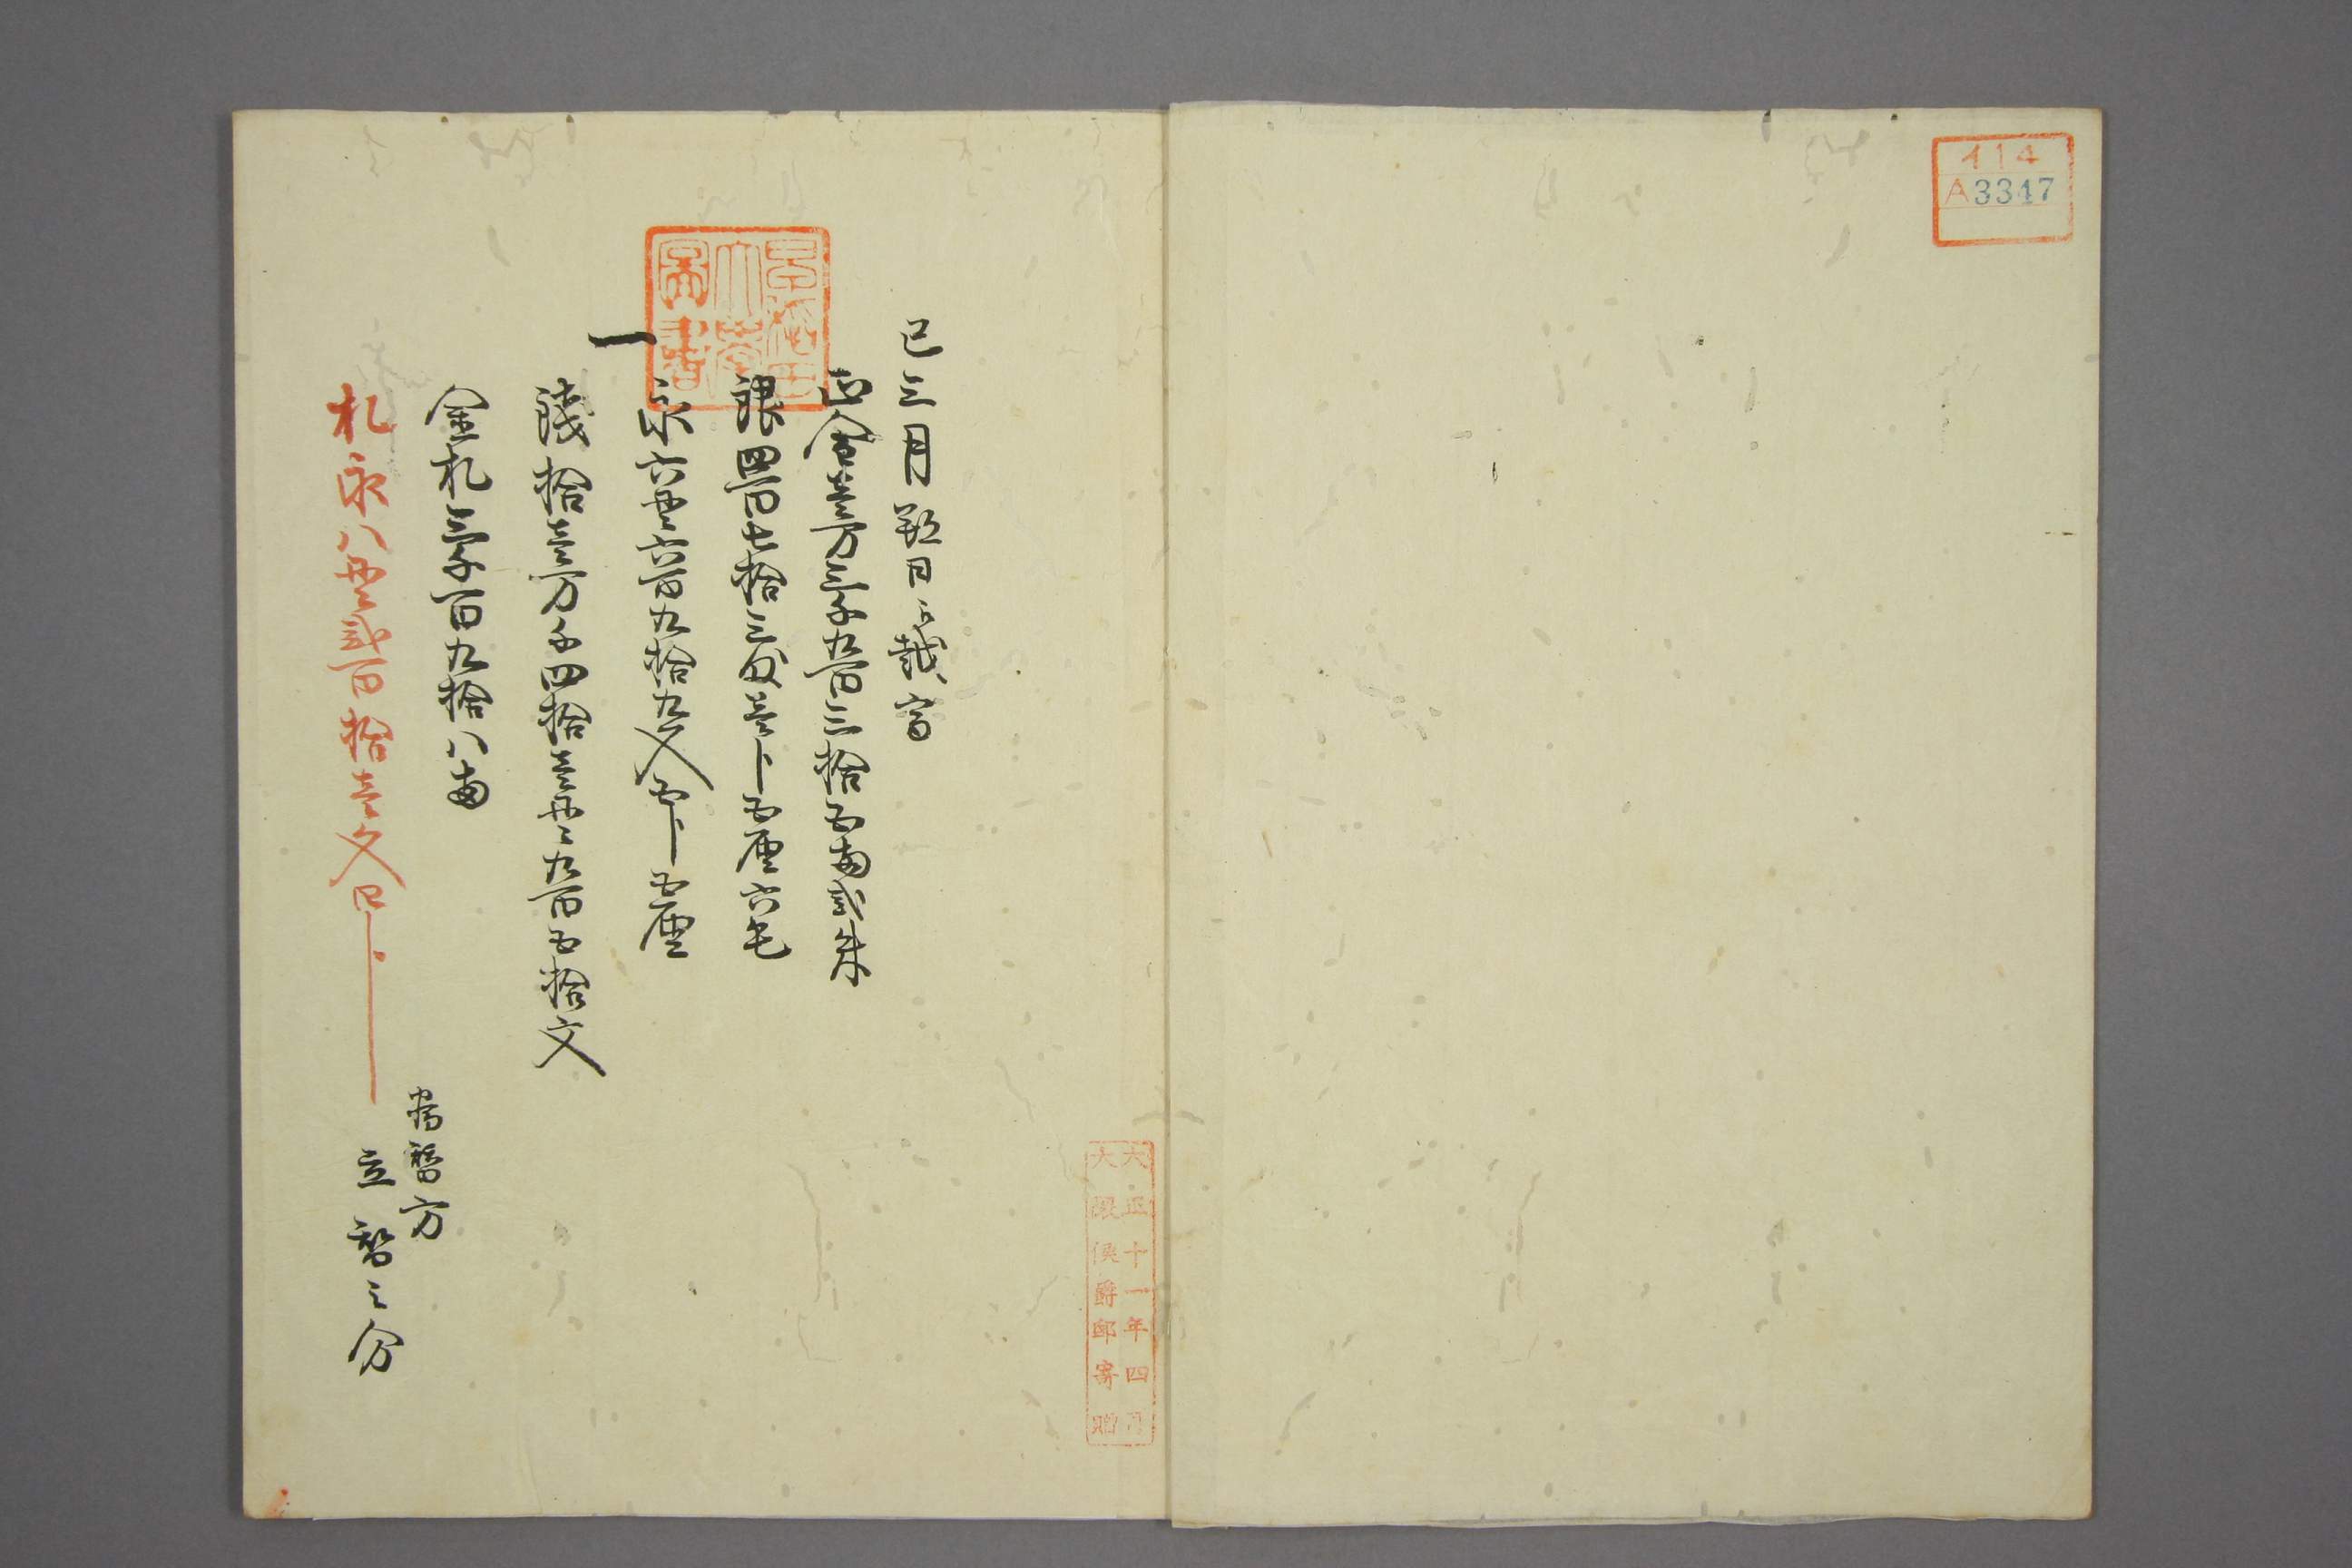 114
A3347
大正十一年四月
大隈侯爵邸寄贈
早稲田
大学
図書
巳三月朔日ゟ越高
正金壱万三千九百三拾五両弐朱
銀四百七拾三匁壱分五厘六毛
一
永六貫六百九拾九文五分五厘
銭拾壱万千四拾壱貫九百五拾文
金札三千百九拾八両
札永八貫弐百拾壱文四分
立替之分